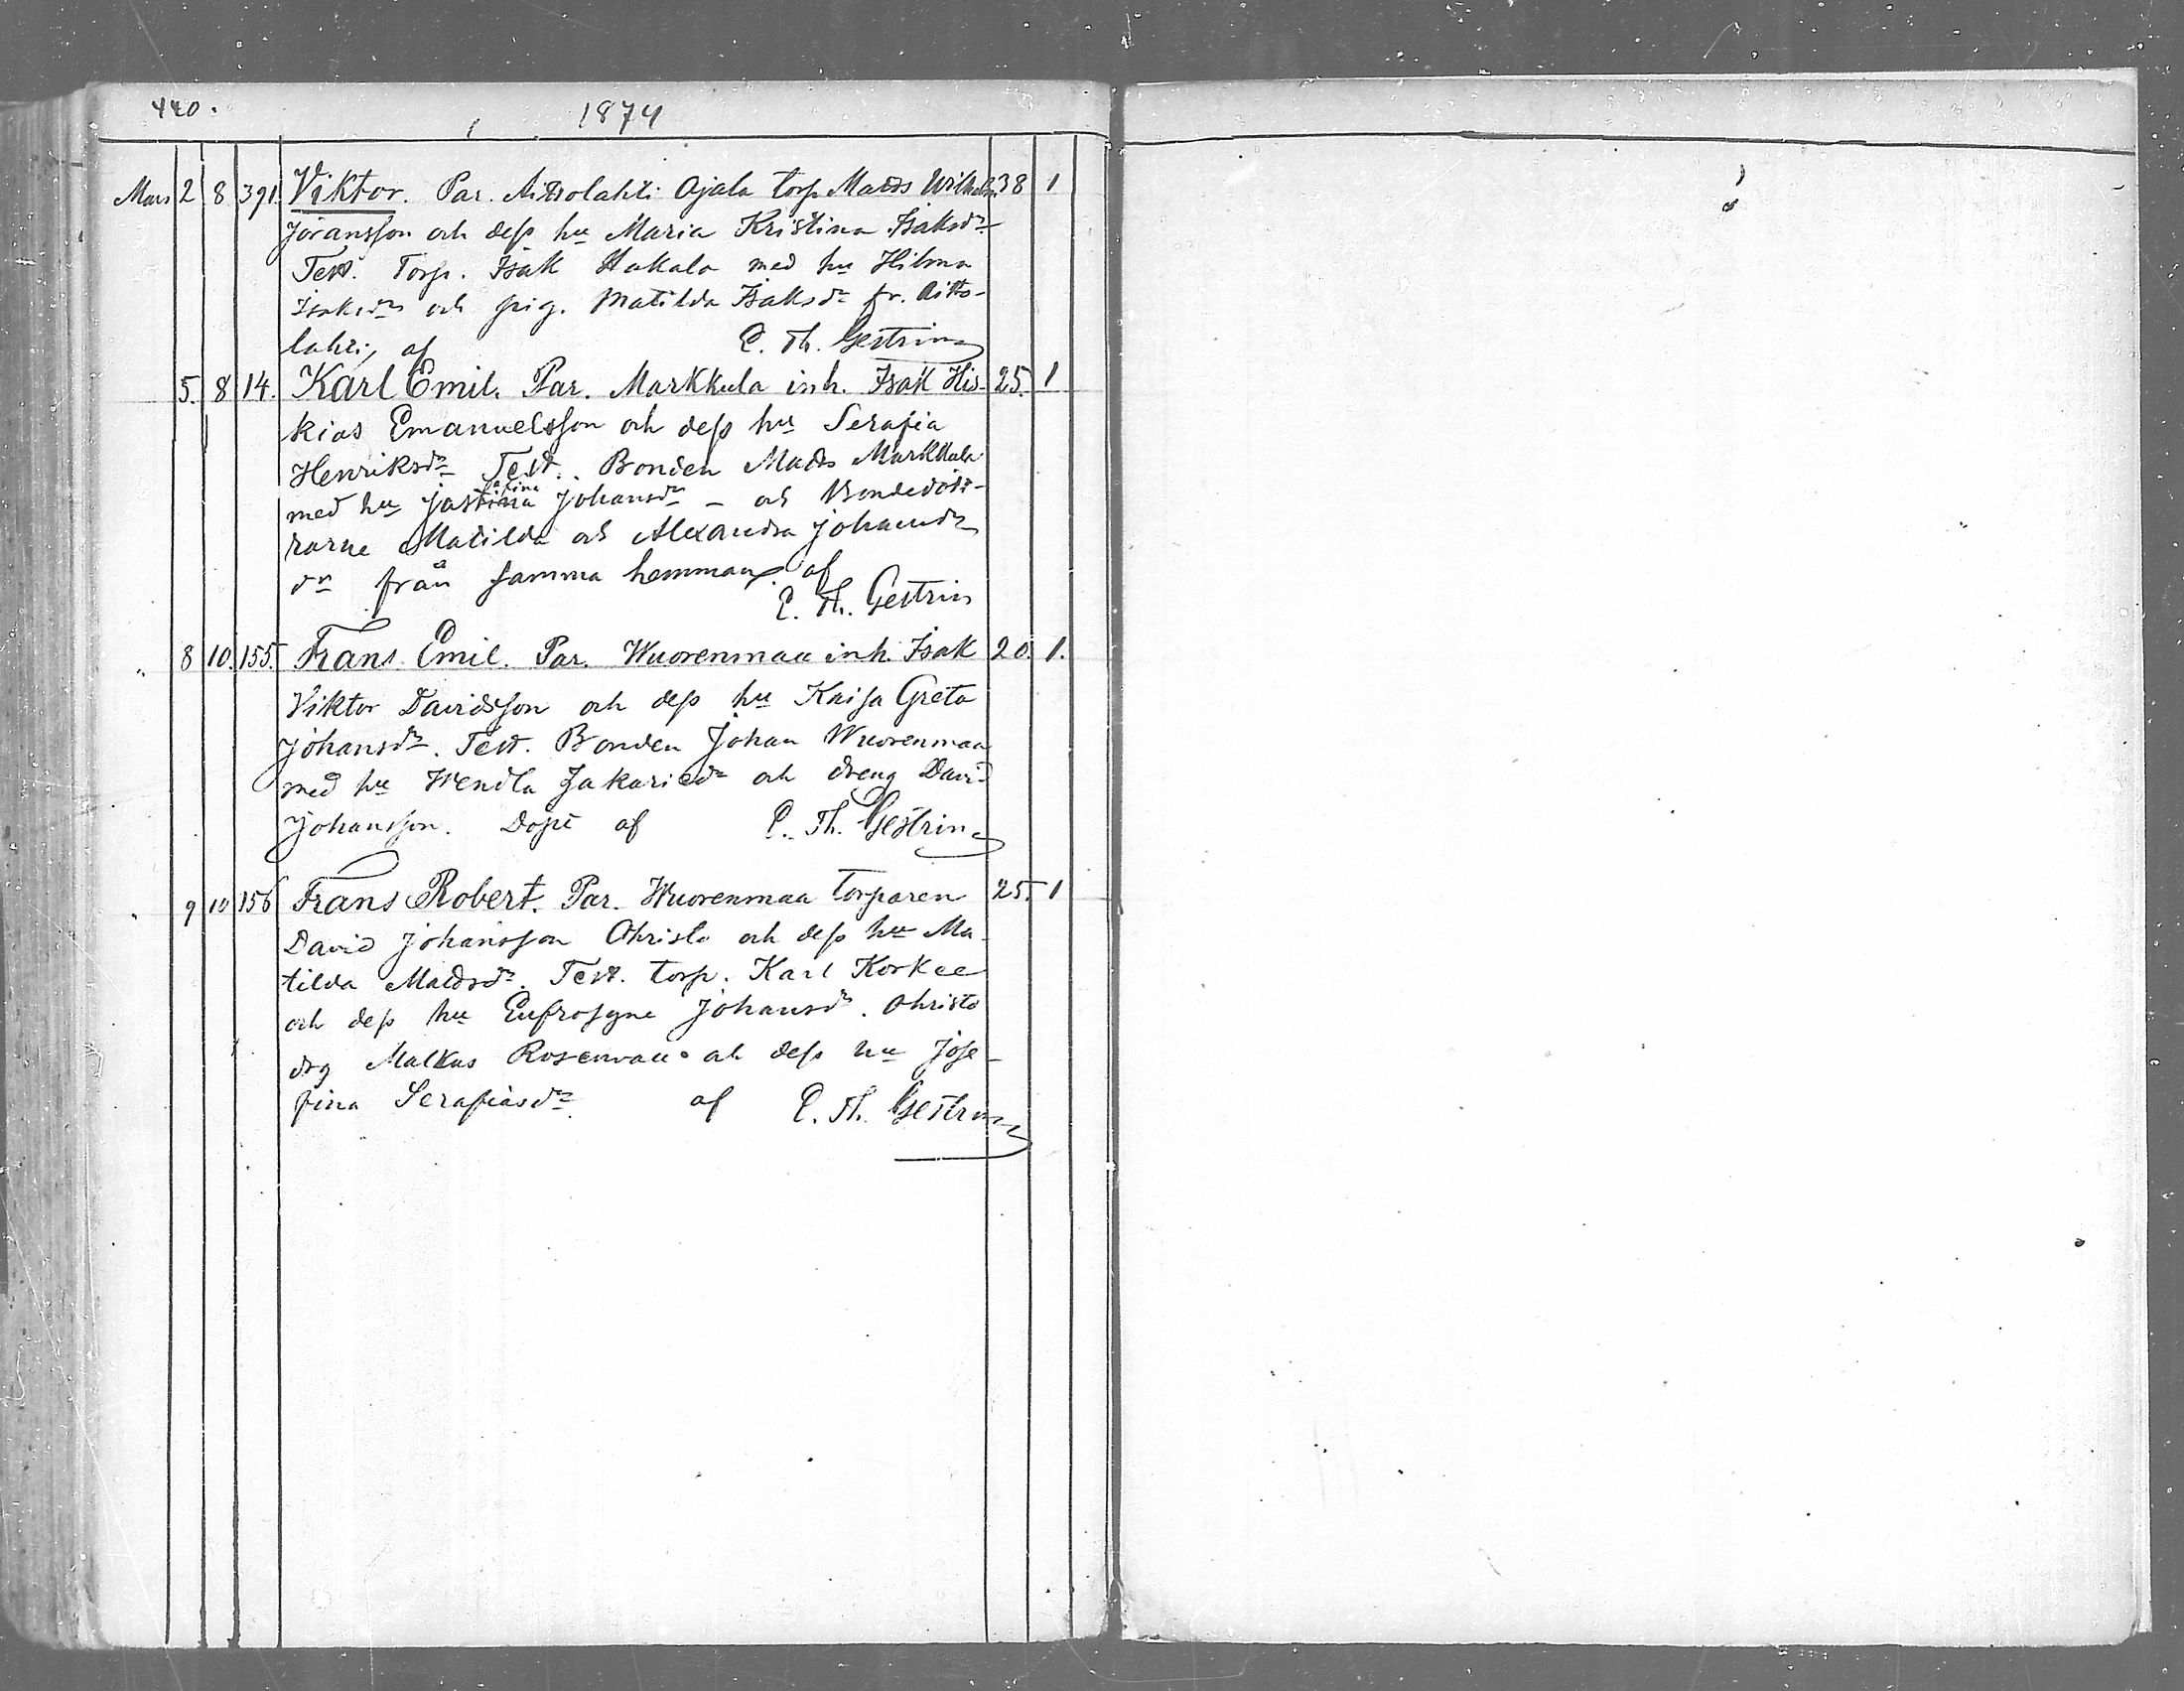 440.
1874
Mars 2 8 391. Viktor. Par. Aittolahti Ojala torp. Matts Wilhelm 38 1
Joransson och dess hu Maria Kristina Isaksdr
Test. Torp. Isak Hakala med hu Hilma
Isaksdr och pig. Matilda Isaksdr fr. Aitto-
lahti, af C. Th. Gestrin
5. 8 14. Karl Emil. Par. Markkula inh. Isak His- 25. 1
kias Emanuelsson och dess hu Serafia
Henriksdr Test. Bonden Matts Markkula
med hu Johansdr - och Bondedött-
rarne Matilda och Alexandra Johans
dr från samma hemman. af
C. Th. Gestrin
" 8 10. 155. Frans Emil. Par. Wuorenmaa inh. Isak 20. 1.
Viktor Davidsson och dess hu Kaisa Greta
Johansdr. Test. Bonden Johan Wuorenmaa
med hu Wendla Zakariedr och dreng David
Johansson. Döpt af C. Th. Gestrin
" 9 10 156 Frans Robert. Par. Wuorenmaa Torparen 25. 1
David Johansson Ohristo och dess hu Ma-
tilda Mattsdr. Test. torp. Karl Korkee
och dess hu Eufrosyne Johansdr. Ohristo
drg Malkus och dess hu Jose-
fina Serafiasdr. af C. Th. Gestrin